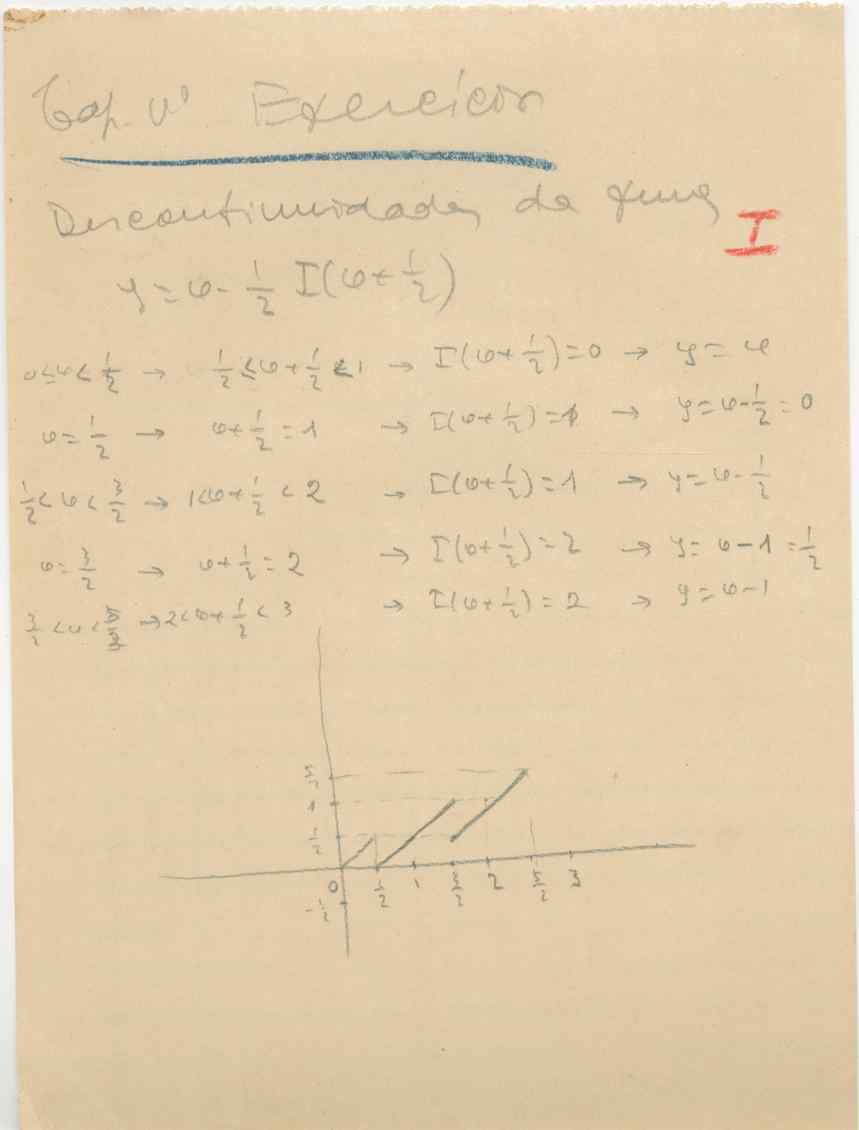 Cap. V Exercícios
Descontinuidades da função
I
y = x - 1/2 I(x + 1/2)
0 ≤ x < 1/2 → 1/2 ≤ x + 1/2 < 1 → I(x + 1/2) = 0 → y = x
x = 1/2 → x + 1/2 = 1 → I(x + 1/2) = 1 → y = x - 1/2 = 0
1/2 < x < 3/2 → 1 < x + 1/2 < 2 → I(x + 1/2) = 1 → y = x - 1/2
x = 3/2 → x + 1/2 = 2 → I(x + 1/2) = 2 → y = x - 1 = 1/2
3/2 < x < 5/2 → 2 < x + 1/2 < 3 → I(x + 1/2) = 2 → y = x - 1
1
1/2
0 1/2 1 3/2 2 5/2 3
-1/2